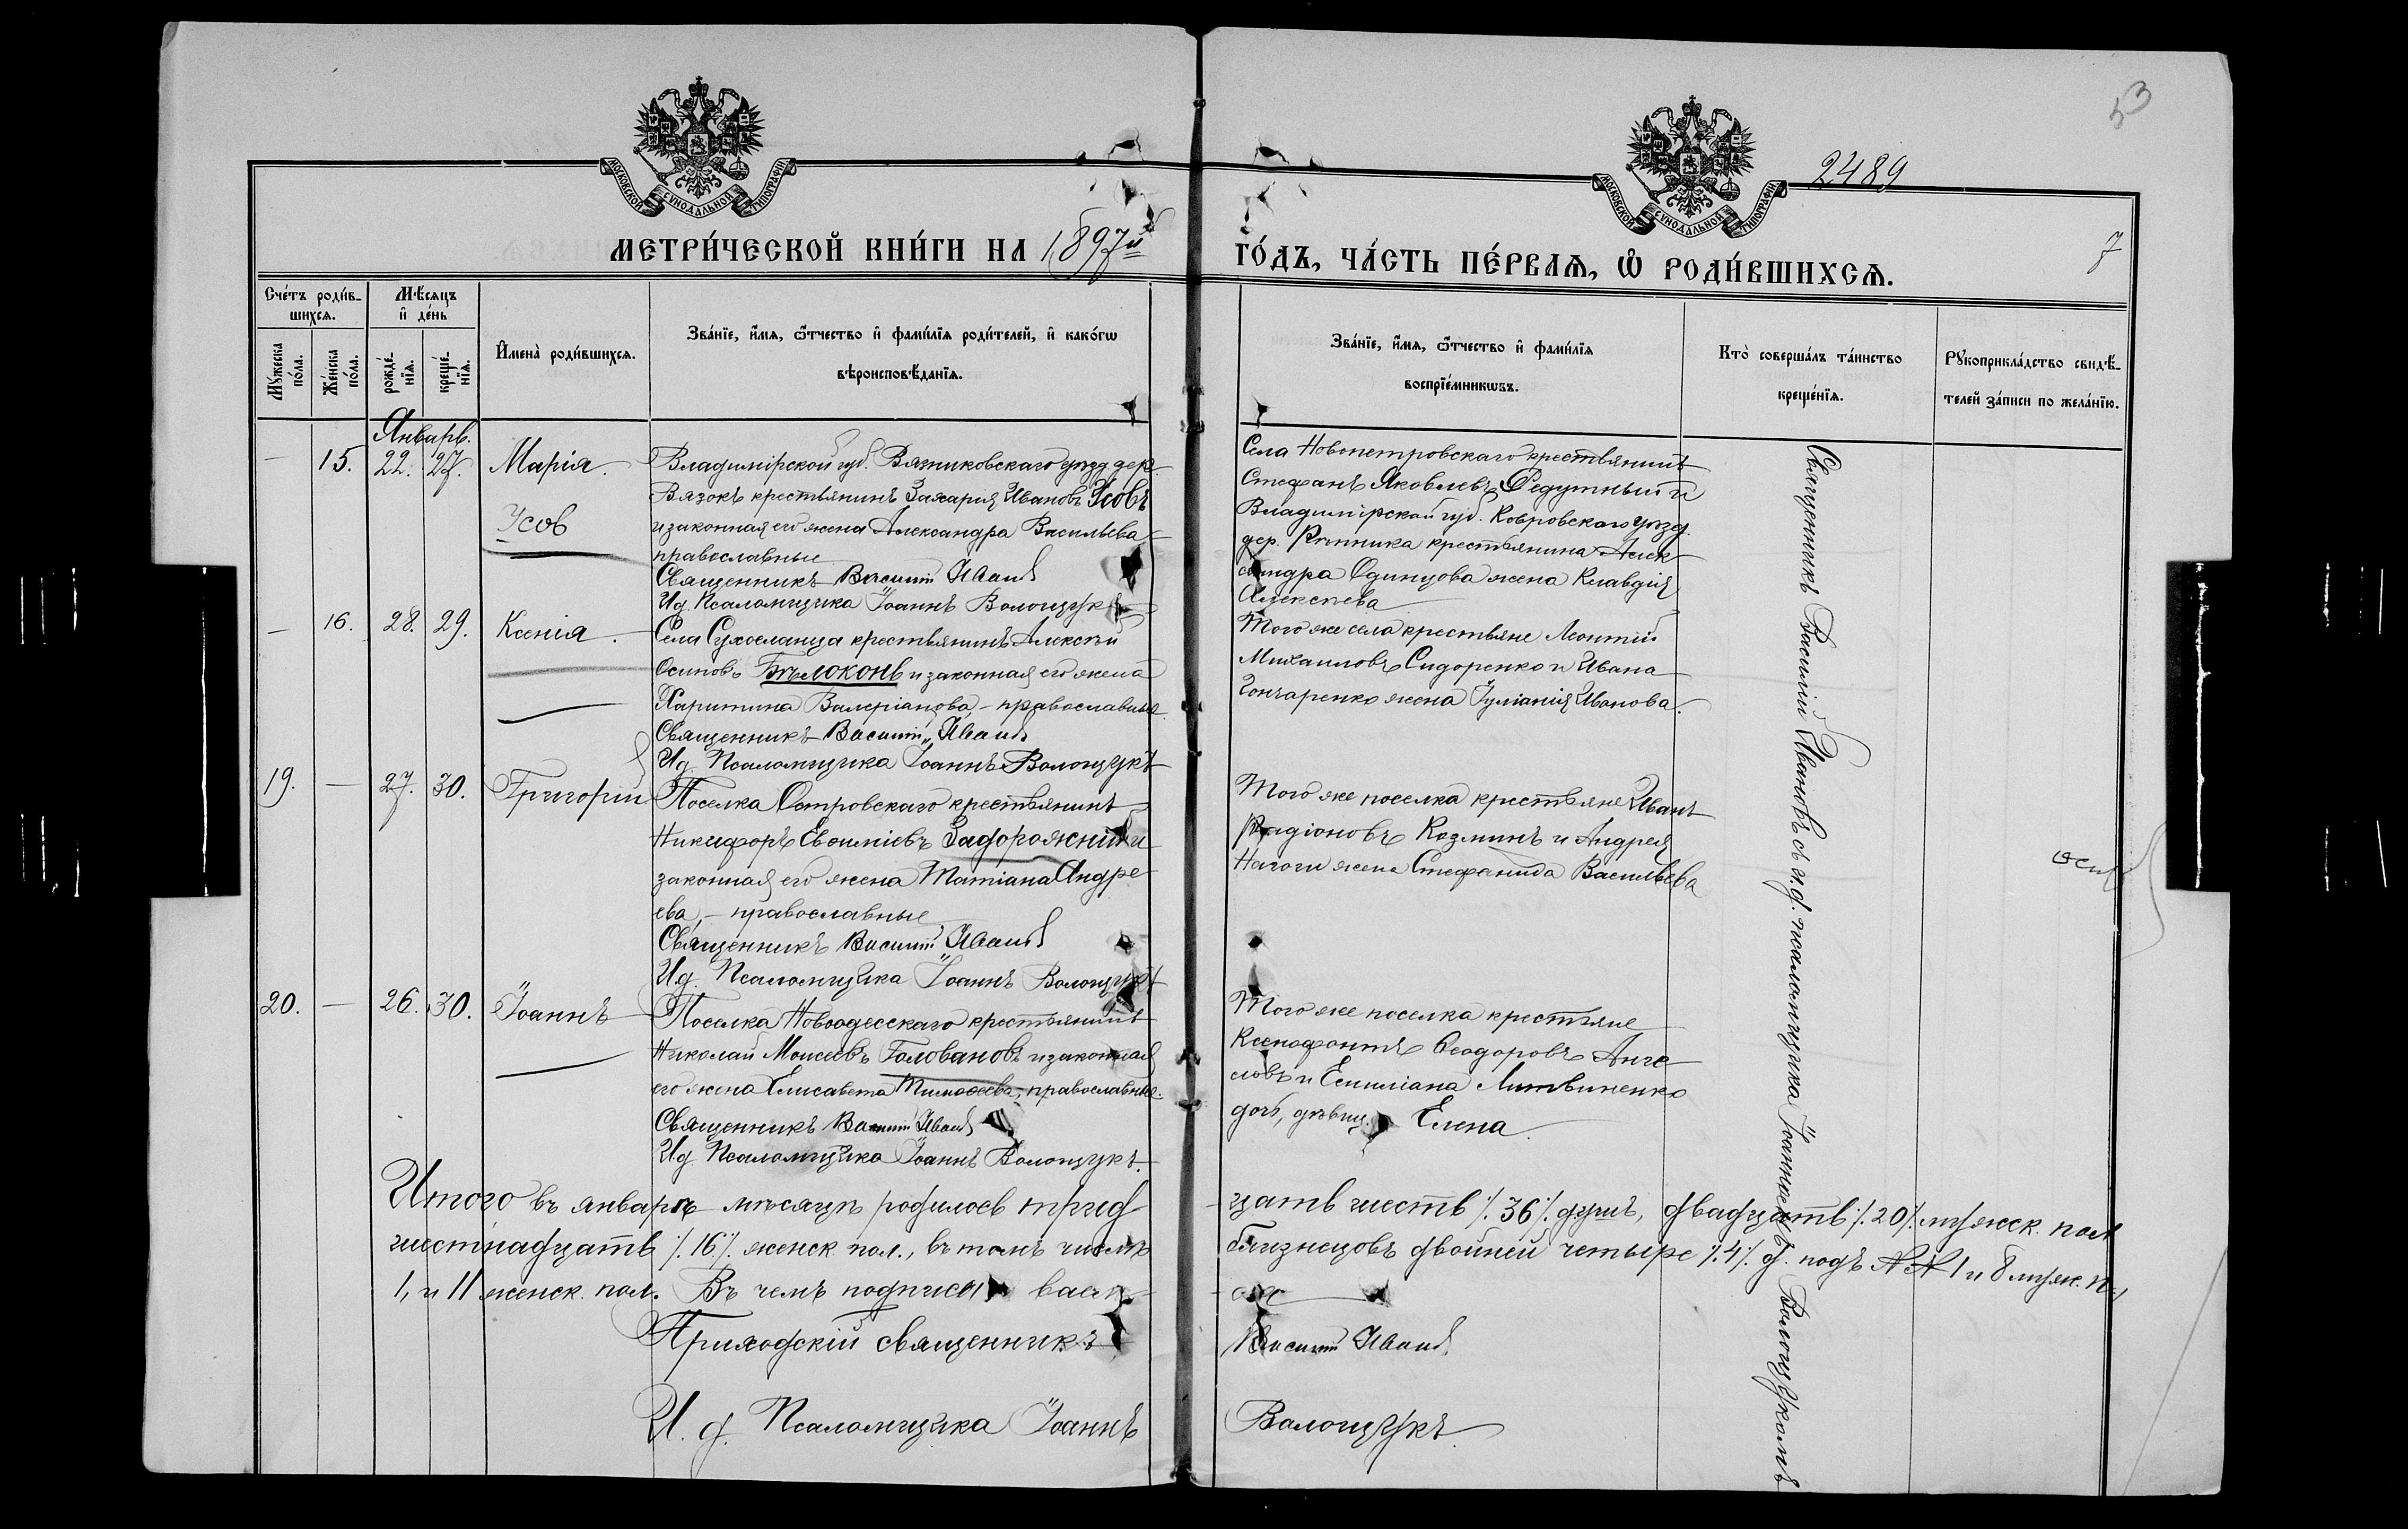 53
МОСКОВСКОЙ СѴНОДАЛЬНОЙ ТИПОГРАФІИ
МОСКОВСКОЙ СѴНОДАЛЬНОЙ ТИПОГРАФІИ
2489
МЕТРИ́ЧЕСКОЙ КНИ́ГИ НА 1897й
ГО́ДЪ, ЧА́СТЬ ПЕ́РВАѦ, Ѡ҆ РОДИ́ВШИХСѦ.
7
Сче́тъ роди́в-
шихсѧ.
Мѣ́сѧцъ
и҆ де́нь
Мꙋ́жеска
по́ла.
Же́нска
по́ла.
рожде́-
нїѧ.
креще́-
нїѧ.
И҆мена̀ роди́вшихсѧ.
Зва́нїе, и҆́мѧ, ѻ҆́тчество и҆ фами́лїѧ роди́телей, и҆ како́гѡ
вѣроисповѣ́данїѧ.
Зва́нїе, и҆́мѧ, ѻ҆́тчество и҆ фами́лїѧ
воспрїе́мникѡвъ.
Кто̀ соверша́лъ та́инство
креще́нїѧ.
Рꙋкоприкла́дство свидѣ́-
телей за́писи по жела́нїю.
Январь.
— 15. 22. 27. Марія.
Усов
Владимірской губ. Вязниковскаго уѣзд. дер.
Вязокъ крестьянинъ Захарія Ивановъ Усовъ
и законная его жена Александра Васильева
православные
Священникъ Василій Ивановъ
И.д. Псаломщика Іоаннъ Волощукъ
Села Новопетровскаго крестьянинъ
Стефанъ Яковлевъ Редутный и
Владимірской губ. Ковровскаго уѣзд.
дер. крестьянина Алек
сандра Одинцова жена Клавдія
Алексѣева
— 16. 28. 29. Ксенія.
Села Сухоеланца крестьянинъ Алексѣй
Осиповъ Бѣлоконь и законная его жена
Харитина Валеріанова, – православные.
Священникъ Василій Ивановъ
И.д. Псаломщика Іоаннъ Волощукъ
Того же села крестьяне Леонтій
Михаиловъ Сидоренко и Ивана
Гончаренко жена Іуліанія Иванова.
19. — 27. 30. Григорій
Поселка Островскаго крестьянинъ
Никифоръ Евѳиміевъ Задорожній и
законная его жена Татіана Андре
ева, – православные
Священникъ Василій Ивановъ
И.д. Псаломщика Іоаннъ Волощукъ
Того же поселка крестьяне Иванъ
Радіоновъ Козминъ и Андрея
Нагоги жена Стефанида Васильева
20. — 26. 30. Іоаннъ
Поселка Новоодесскаго крестьянинъ
Николай Моисеевъ Головановъ и законная
его жена Елисавета Тимоѳеева, – православные.
Священникъ Василій Ивановъ
И.д. Псаломщика Іоаннъ Волощукъ.
Того же поселка крестьяне
Ксенофонтъ Ѳеодоровъ Анге
ловъ и Емиліана Литвиненко
дочь, дѣвиц. Елена.
Священникъ Василій Ивановъ съ и.д. псаломщика Іоанномъ Волощукомъ
Итого въ январѣ мѣсяцѣ родилось трид
цать шесть /.36/. душъ, двадцать /.20/. мужеск. пол
шестнадцать /.16/. женск. пол., въ томъ числѣ
близнецовъ двойней четыре /.4/. д. подъ №№ 1 и 8 муж. п.,
1, и 11 женск. пол. Въ чемъ подписываем
ся
Приходскій священникъ
Василій Ивановъ
И. д. Псаломщика Іоаннъ
Волощукъ